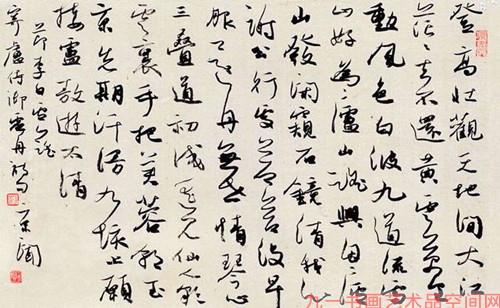 登高壮觀天地間大江
茫茫去不還黄雲萬里
動風色白波九道流雪
山好為廬山謠興因廬
山發闲窺石鏡清我心
謝公行處蒼苔没早
服還丹無世情琴心
三疊道初成遥見仙人彩
雲裏手把芙蓉朝玉
京先期汗漫九垓上願
接盧敖遊太清
節李白廬山謠
寄盧侍御虚舟
九一书画艺术品空间网